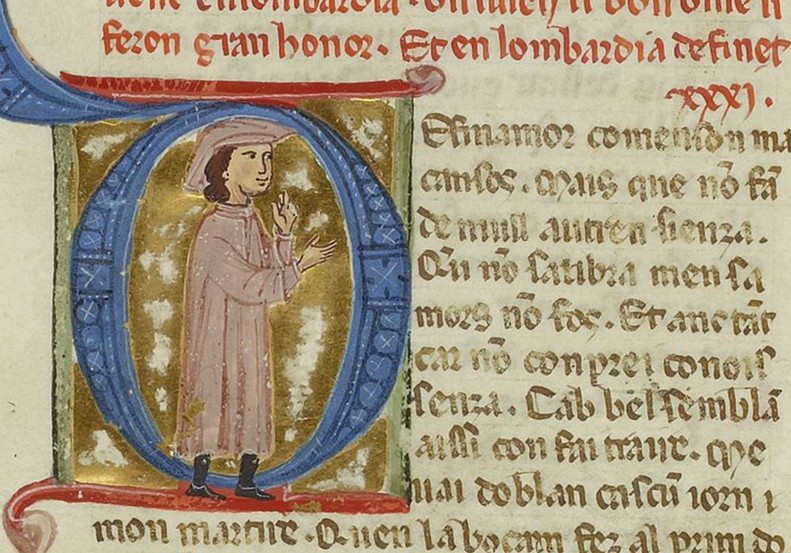 en lombardia . on
feron gran honor . Et en lombardia definet
xxxi .
Esinamor comenson ma
cansos . Mais que nō fā
de nuill autren sienza .
Qŭ nō satibra men sa
mors nō fos . Et anc tāt
car nō conprei conois
senza . Cab bel semblā
aissi con fai traire . Qe
mai doblan cascū iorn i
mon martire . Q uen la bocam fez al prim do